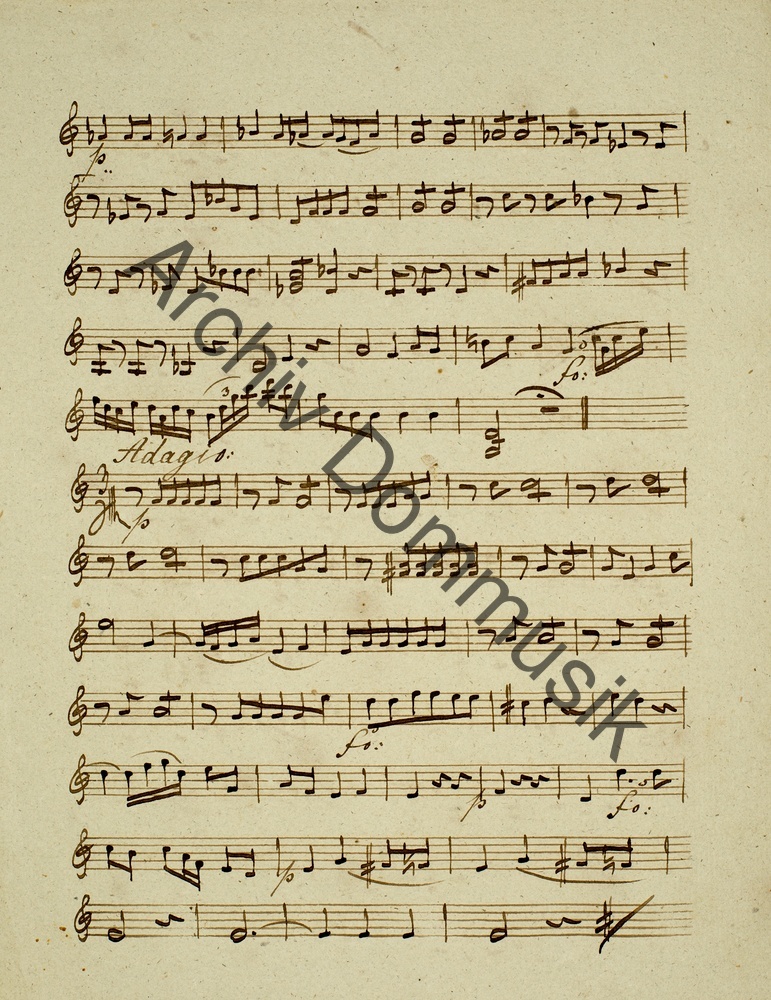 p.
fo:
3
Adagio:
3/4
p
fo:
p
fo:
p
Archiv Dommusik